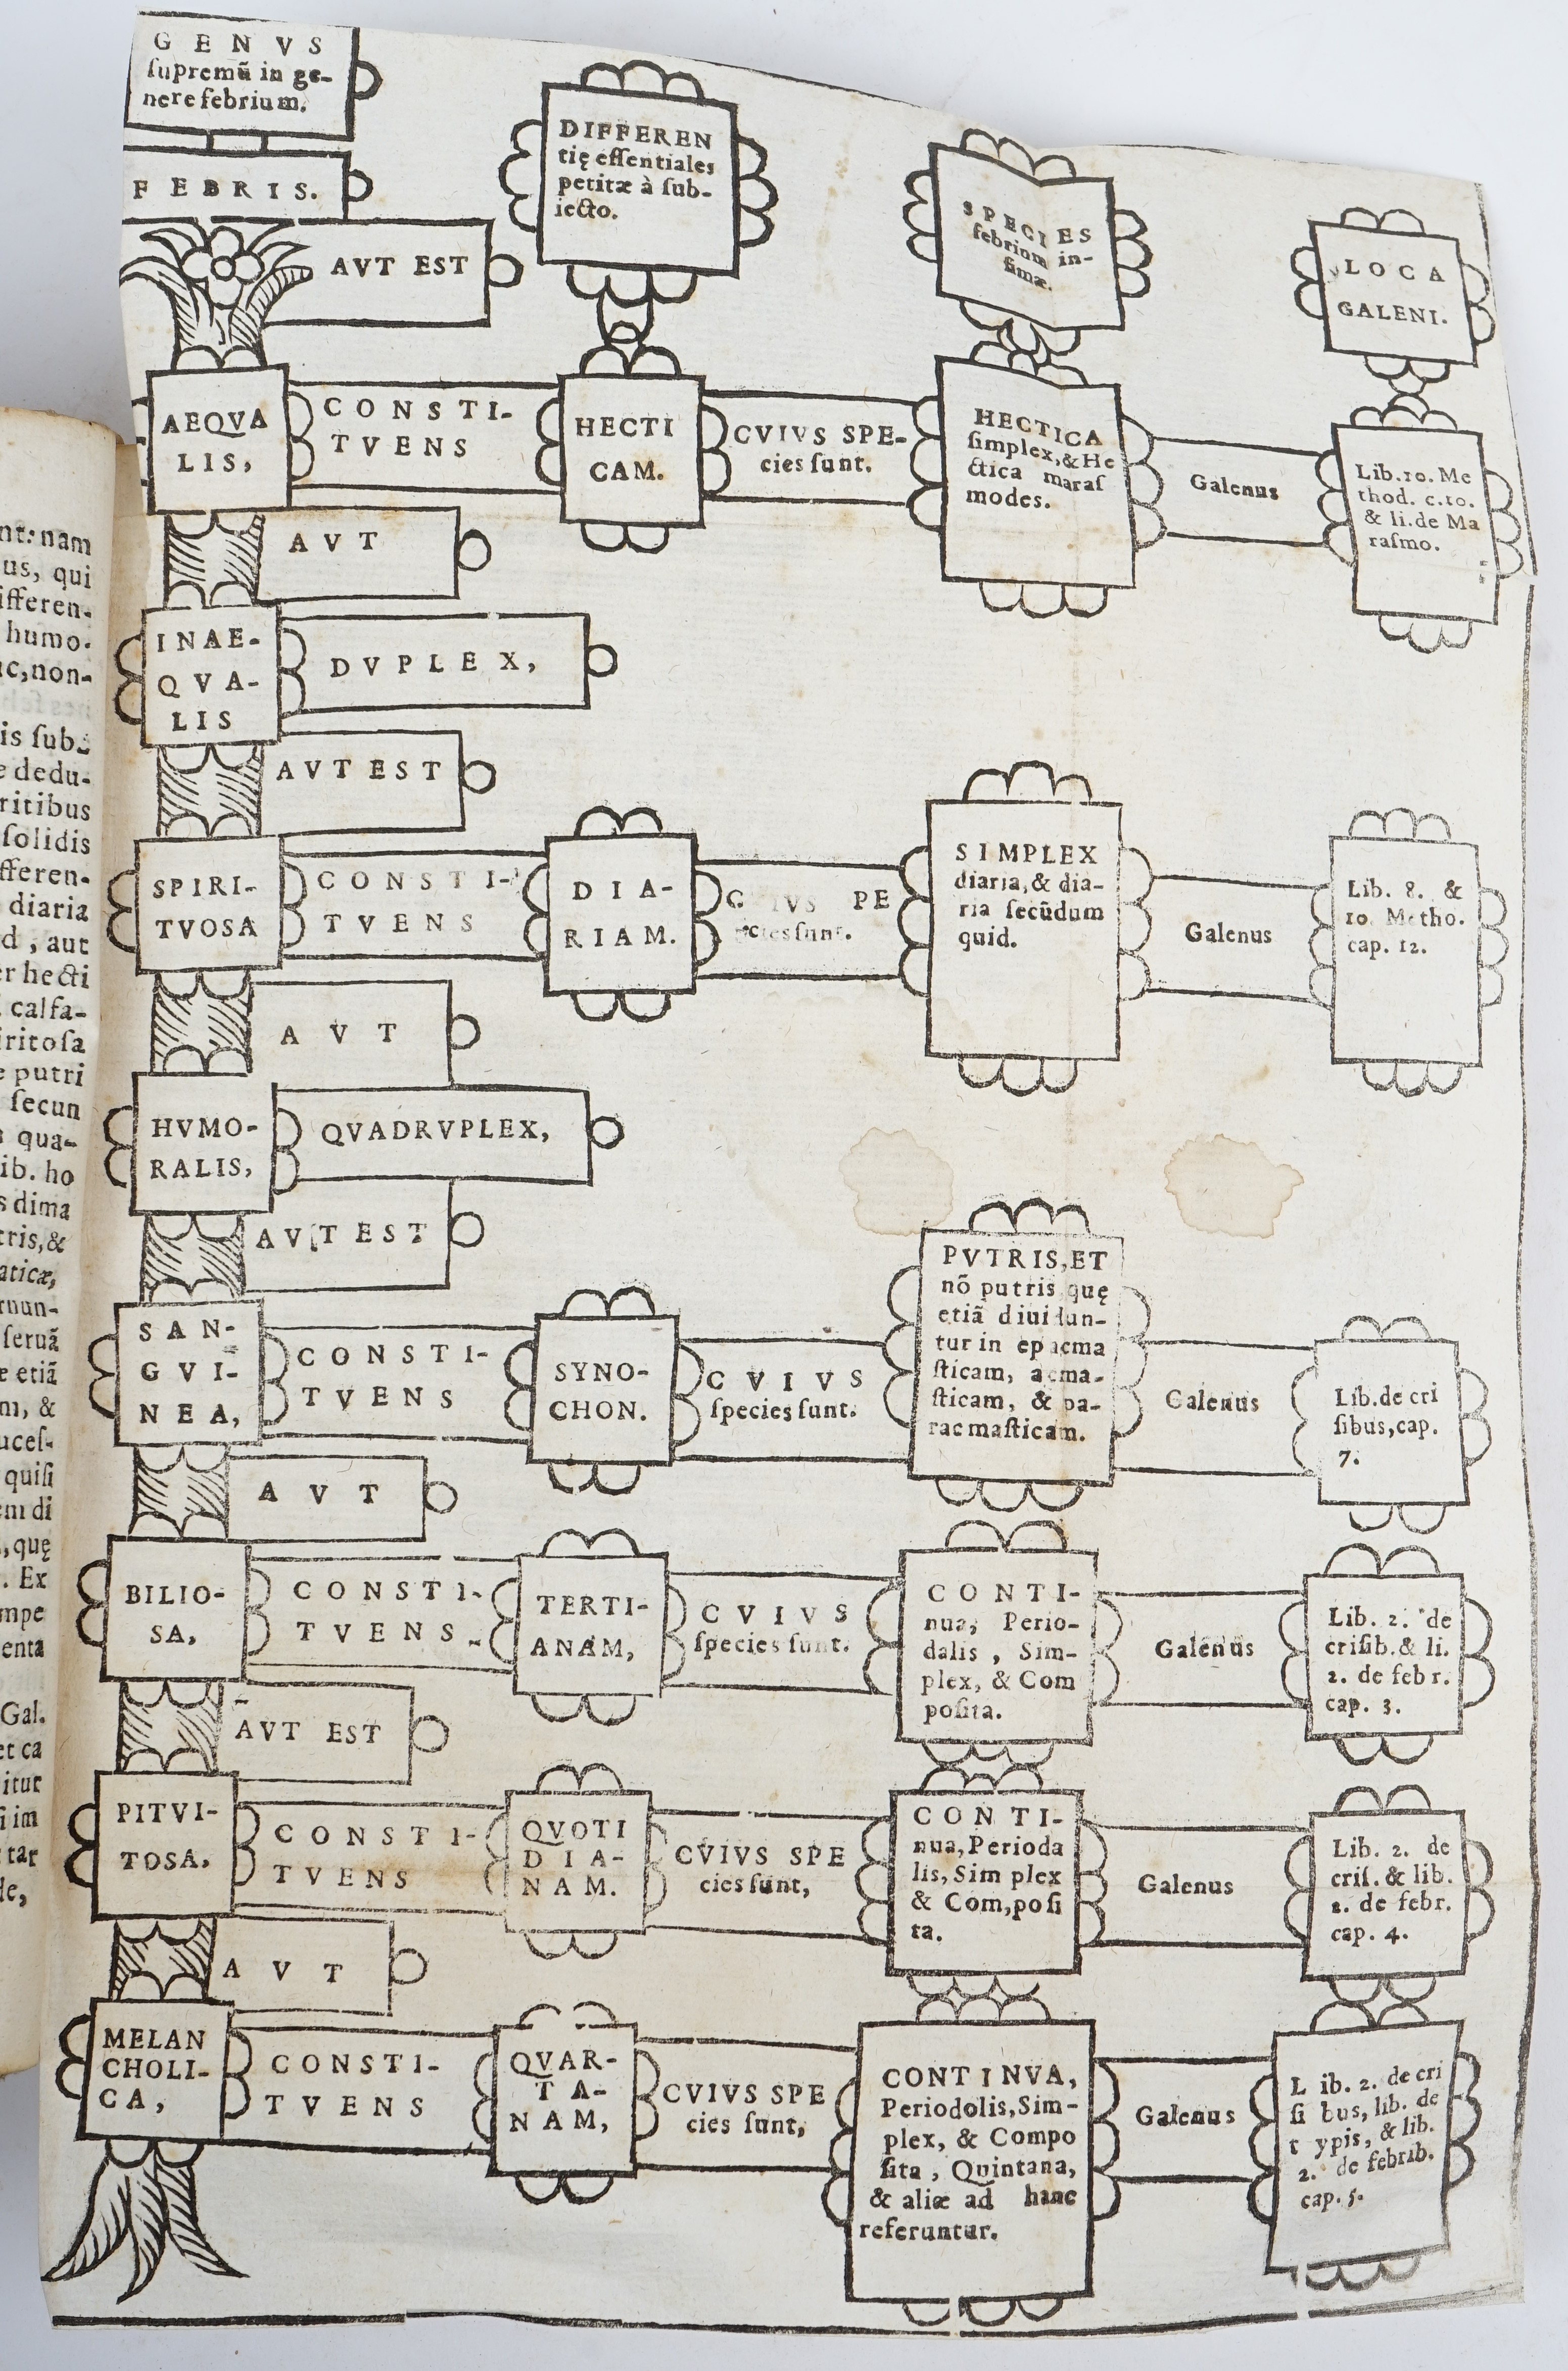 GENVS
ſupremũ in ge-
nere febrium.
FEBRIS.
AVT EST
DIFFEREN
tię eſſentiales
petitæ à ſub-
iecto.
SPECIES
febrium in-
fimæ.
LOCA
GALENI.
AEQVA
LIS,
CONSTI-
TVENS
HECTI
CAM.
CVIVS SPE-
cies ſunt.
HECTICA
ſimplex,& He
ctica maraſ
modes.
Galenus
Lib.10. Me
thod. c.10.
& li.de Ma
raſmo.
AVT
INAE-
QVA-
LIS
DVPLEX,
AVT EST
SPIRI-
TVOSA
CONSTI-
TVENS
DIA-
RIAM.
C IVS PE
cies ſunt.
SIMPLEX
diaria,& dia-
ria ſecũdum
quid.
Galenus
Lib. 8. &
10. Metho.
cap. 12.
AVT
HVMO-
RALIS,
QVADRVPLEX,
AVT EST
SAN-
GVI-
NEA,
CONSTI-
TVENS
SYNO-
CHON.
CVIVS
ſpecies ſunt.
PVTRIS,ET
nõ putris quę
etiã diuidun-
tur in epacma
ſticam, acma-
ſticam, & pa-
racmaſticam.
Galenus
Lib.de cri
ſibus,cap.
7.
AVT
BILIO-
SA,
CONSTI-
TVENS
TERTI-
ANAM,
CVIVS
ſpecies ſunt.
CONTI-
nua, Perio-
dalis, Sim-
plex, & Com
poſita.
Galenus
Lib. 2. de
criſib.& li.
2. de febr.
cap. 3.
AVT EST
PITVI-
TOSA,
CONSTI-
TVENS
QVOTI
DIA-
NAM.
CVIVS SPE
cies ſunt,
CONTI-
nua,Perioda
lis,Sim plex
& Com,poſi
ta.
Galenus
Lib. 2. de
criſ. & lib.
2. de febr.
cap. 4.
AVT
MELAN
CHOLI-
CA,
CONSTI-
TVENS
QVAR-
TA-
NAM,
CVIVS SPE
cies ſunt,
CONTINVA,
Periodolis,Sim-
plex, & Compo
ſita, Quintana,
& aliæ ad hanc
referuntur.
Galenus
L ib. 2. de cri
ſi bus, lib. de
t ypis, & lib.
2. de febrib.
cap. 5.
nt: nam
us, qui
ifferen-
humo.
ac,non-
is ſub-
e dedu-
ritibus
ſolidis
fferen-
diaria
d, aut
er hecti
calfa-
iritoſa
e putri
ſecun
qua-
ib. ho
s dima
tris,&
aticæ,
rnun-
ſeruã
e etiã
m, &
uceſ-
quiſi
em di
, quę
. Ex
mpe
enta
Gal.
et ca
itur
ſi im
tar
de,